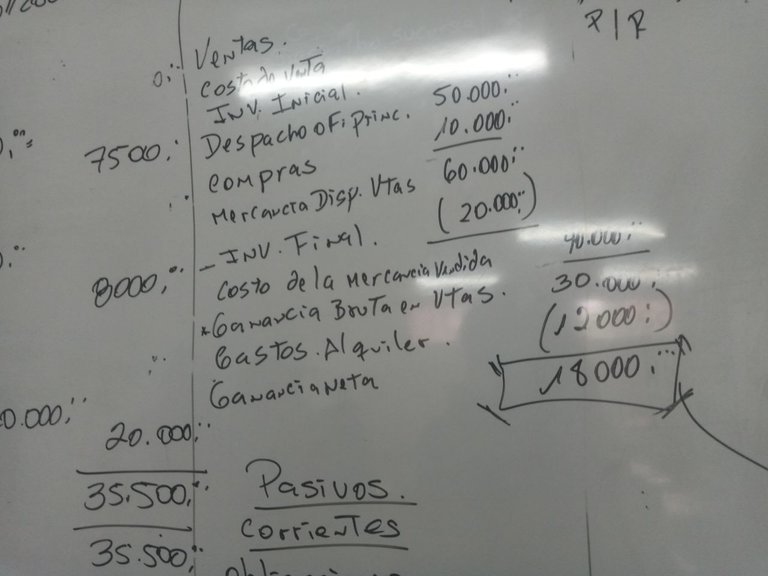 P/R
Ventas.
Costo de Venta
INV. Inicial.
Despacho ofi princ. 50.000,
compras 10.000,
Mercancia Disp. Vtas 60.000,
- INV. Final. (20.000,)
Costo de la Mercancia Vendida 40.000,
*Ganancia Bruta en Vtas. 30.000,
Gastos. Alquiler. (12000,)
Ganancia neta 18000,
7500,
8000,
0.000,
20.000,
35.500,
35.500,
Pasivos.
corrientes